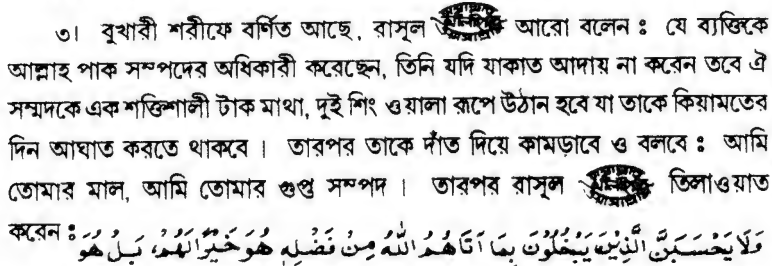 ৩। বুখারী শরীফে বর্ণিত আছে, রাসূল আরো বলেন : যে ব্যক্তিকে
আল্লাহ পাক সম্পদের অধিকারী করেছেন, তিনি যদি যাকাত আদায় না করেন তবে ঐ
সম্মদকে এক শক্তিশালী টাক মাথা, দুই শিং ওয়ালা রূপে উঠান হবে যা তাকে কিয়ামতের
দিন আঘাত করতে থাকবে । তারপর তাকে দাঁত দিয়ে কামড়াবে ও বলবে : আমি
তোমার মাল, আমি তোমার গুপ্ত সম্পদ । তারপর রাসূল তিলাওয়াত
করেন : وَلَا يَحْسَبَنَّ الَّذِيْنَ يَبْخَلُوْنَ بِمَا اٰتَاهُمُ اللّٰهُ مِنْ فَضْلِهٖ هُوَ خَيْرًا لَهُمْ، بَلْ هُوَ